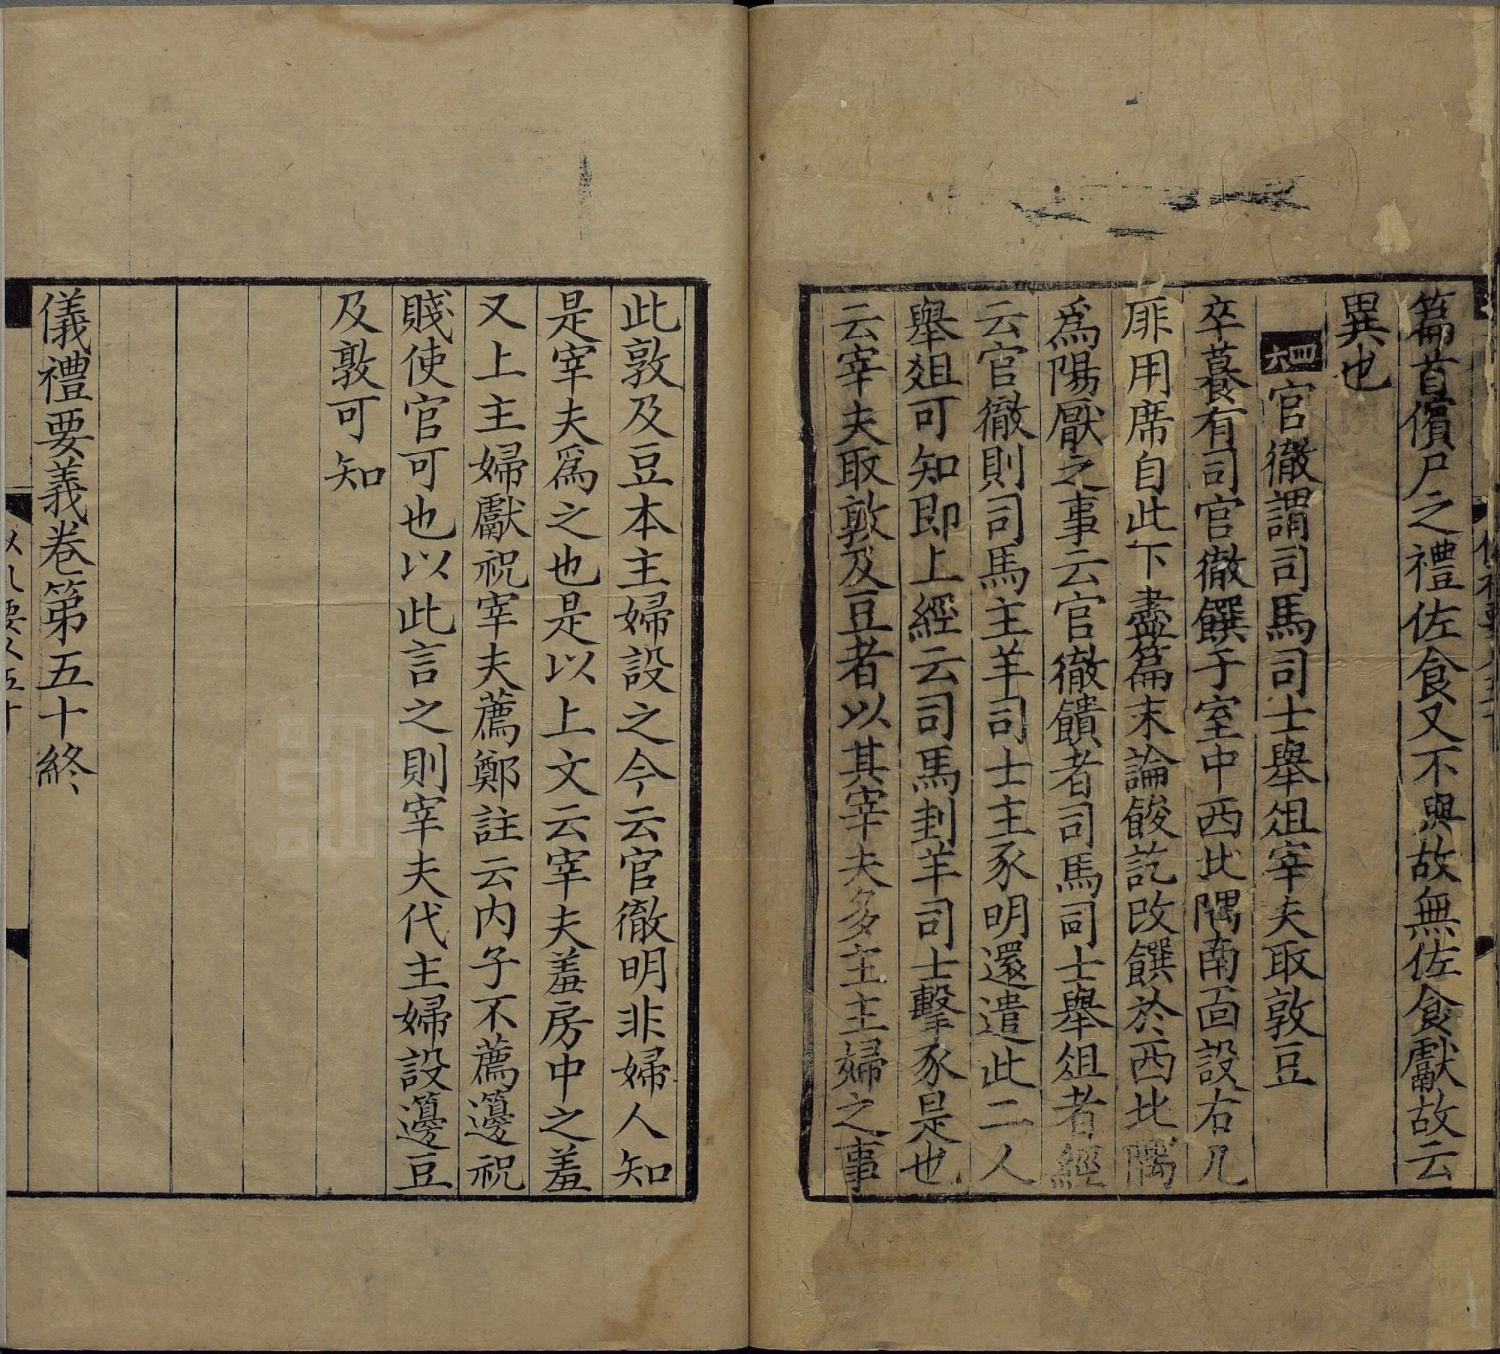 篇首儐尸之禮佐食又不與故無佐食獻故云
異也
四六官徹謂司馬司士舉俎宰夫取敦豆
卒餕有司官徹饌于室中西北隅南面設右几
厞用席自此下盡篇末論餕訖改饌於西北隅
爲陽厭之事云官徹饋者司馬司士舉俎者經
云官徹則司馬主羊司士主豕明還遣此二人
舉俎可知即上經云司馬刲羊司士擊豕是也
云宰夫取敦及豆者以其宰夫多主主婦之事
此敦及豆本主婦設之今云官徹明非婦人知
是宰夫爲之也是以上文云宰夫羞房中之羞
又上主婦獻祝宰夫薦鄭註云内子不薦籩祝
賤使官可也以此言之則宰夫代主婦設籩豆
及敦可知
儀禮要義卷第五十終